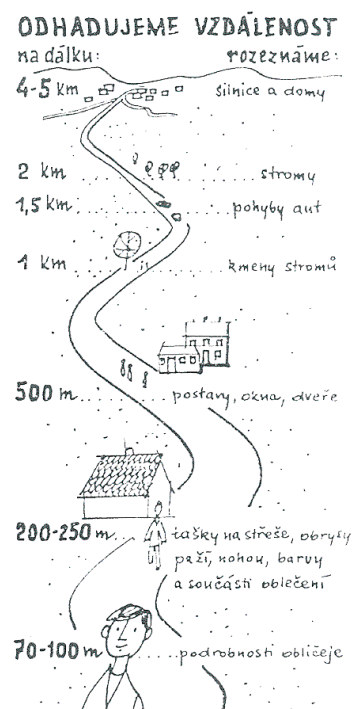 ODHADUJEME VZDÁLENOST
na dálku: rozeznáme:
4-5 km silnice a domy
2 km stromy
1,5 km pohyby aut
1 km kmeny stromů
500 m postavy, okna, dveře
200-250 m taš̌ky na střeše, obrysy
paží, nohou, barvy
a součásti oblečení
70-100 m podrobnosti obličeje